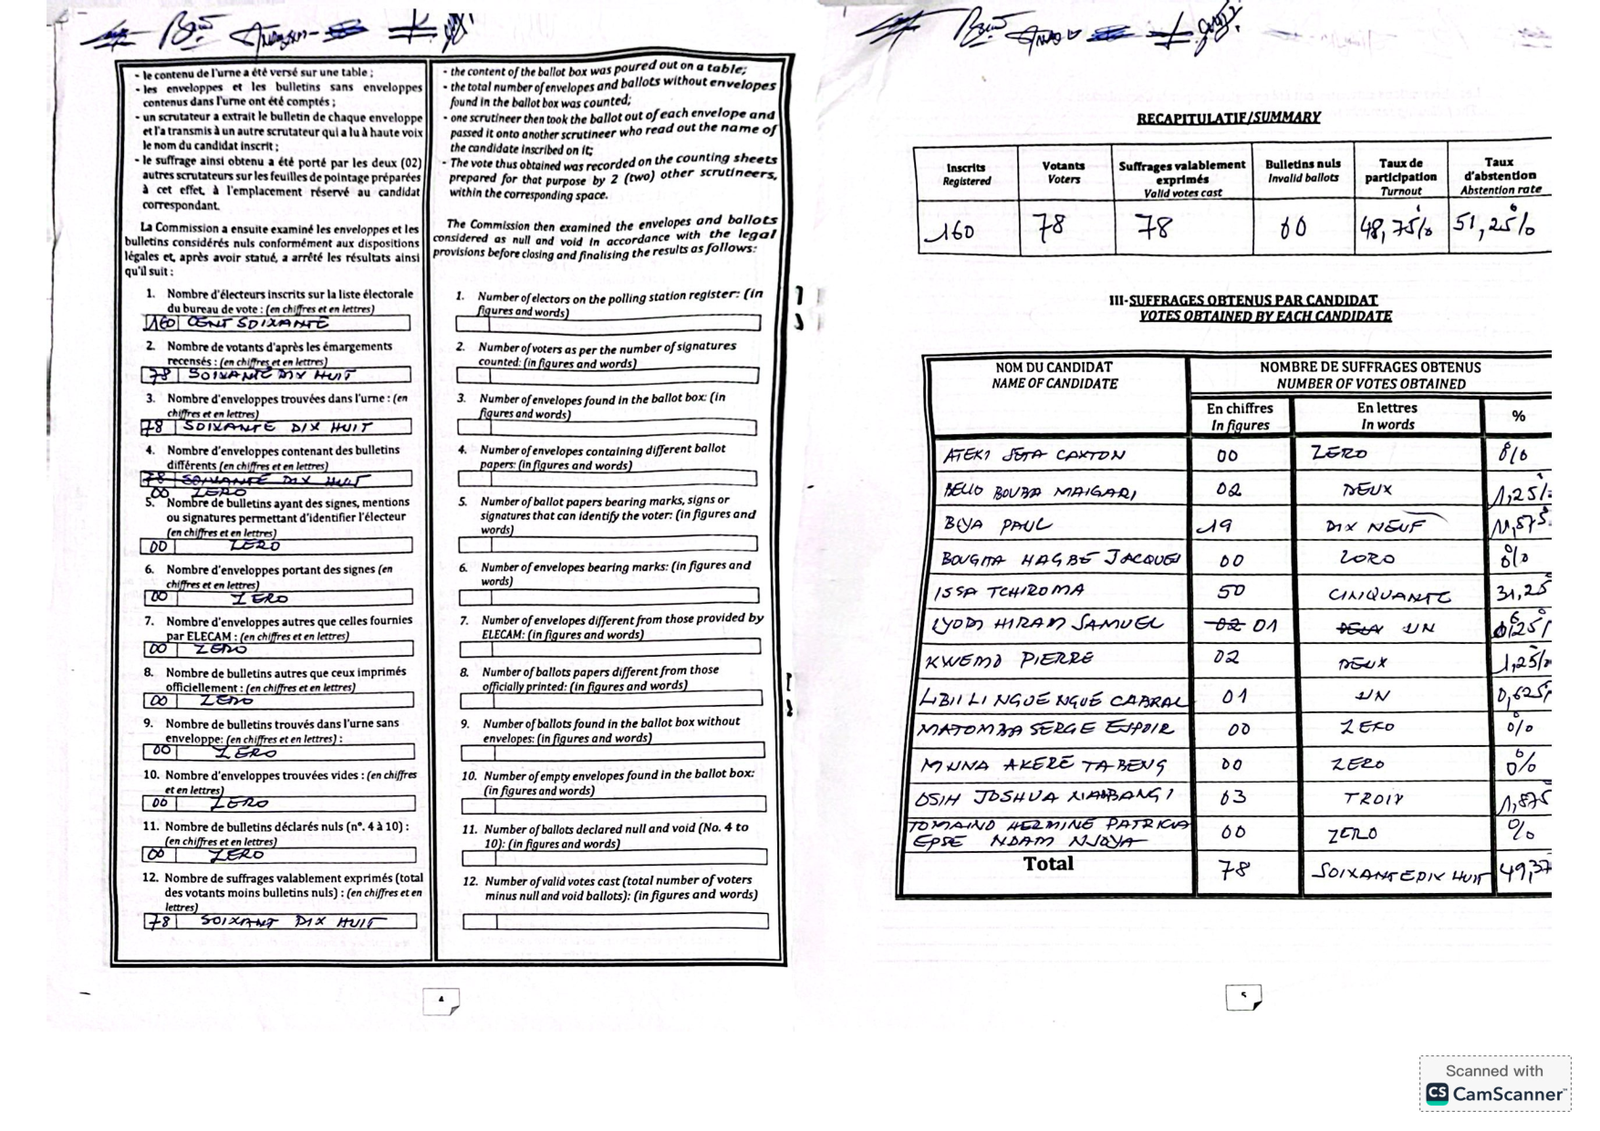 - le contenu de l'urne a été versé sur une table ;
- les enveloppes et les bulletins sans enveloppes
contenus dans l'urne ont été comptés ;
- un scrutateur a extrait le bulletin de chaque enveloppe
et l'a transmis à un autre scrutateur qui a lu à haute voix
le nom du candidat inscrit ;
- le suffrage ainsi obtenu a été porté par les deux (02)
autres scrutateurs sur les feuilles de pointage préparées
à cet effet, à l'emplacement réservé au candidat
correspondant.
La Commission a ensuite examiné les enveloppes et les
bulletins considérés nuls conformément aux dispositions
légales et, après avoir statué, a arrêté les résultats ainsi
qu'il suit :
1. Nombre d'électeurs inscrits sur la liste électorale
du bureau de vote : (en chiffres et en lettres)
160 CENT SOIXANTE
2. Nombre de votants d'après les émargements
recensés : (en chiffres et en lettres)
78 SOIXANTE DIX HUIT
3. Nombre d'enveloppes trouvées dans l'urne : (en
chiffres et en lettres)
78 SOIXANTE DIX HUIT
4. Nombre d'enveloppes contenant des bulletins
différents (en chiffres et en lettres)
78 SOIXANTE DIX HUIT
00 ZERO
5. Nombre de bulletins ayant des signes, mentions
ou signatures permettant d'identifier l'électeur
(en chiffres et en lettres)
00 ZERO
6. Nombre d'enveloppes portant des signes (en
chiffres et en lettres)
00 ZERO
7. Nombre d'enveloppes autres que celles fournies
par ELECAM : (en chiffres et en lettres)
00 ZERO
8. Nombre de bulletins autres que ceux imprimés
officiellement : (en chiffres et en lettres)
00 ZERO
9. Nombre de bulletins trouvés dans l'urne sans
enveloppe: (en chiffres et en lettres) :
00 ZERO
10. Nombre d'enveloppes trouvées vides : (en chiffres
et en lettres)
00 ZERO
11. Nombre de bulletins déclarés nuls (n°. 4 à 10) :
(en chiffres et en lettres)
00 ZERO
12. Nombre de suffrages valablement exprimés (total
des votants moins bulletins nuls) : (en chiffres et en
lettres)
78 SOIXANT DIX HUIT
- the content of the ballot box was poured out on a table;
- the total number of envelopes and ballots without envelopes
found in the ballot box was counted;
- one scrutineer then took the ballot out of each envelope and
passed it onto another scrutineer who read out the name of
the candidate inscribed on it;
- The vote thus obtained was recorded on the counting sheets
prepared for that purpose by 2 (two) other scrutineers,
within the corresponding space.
The Commission then examined the envelopes and ballots
considered as null and void in accordance with the legal
provisions before closing and finalising the results as follows:
1. Number of electors on the polling station register: (in
figures and words)
2. Number of voters as per the number of signatures
counted: (in figures and words)
3. Number of envelopes found in the ballot box: (in
figures and words)
4. Number of envelopes containing different ballot
papers: (in figures and words)
5. Number of ballot papers bearing marks, signs or
signatures that can identify the voter: (in figures and
words)
6. Number of envelopes bearing marks: (in figures and
words)
7. Number of envelopes different from those provided by
ELECAM: (in figures and words)
8. Number of ballots papers different from those
officially printed: (in figures and words)
9. Number of ballots found in the ballot box without
envelopes: (in figures and words)
10. Number of empty envelopes found in the ballot box:
(in figures and words)
11. Number of ballots declared null and void (No. 4 to
10): (in figures and words)
12. Number of valid votes cast (total number of voters
minus null and void ballots): (in figures and words)
4
RECAPITULATIF/SUMMARY
Inscrits Registered | Votants Voters | Suffrages valablement exprimés Valid votes cast | Bulletins nuls Invalid ballots | Taux de participation Turnout | Taux d'abstention Abstention rate
160 78 78 00 48,75% 51,25%
III-SUFFRAGES OBTENUS PAR CANDIDAT
VOTES OBTAINED BY EACH CANDIDATE
NOM DU CANDIDAT NOMBRE DE SUFFRAGES OBTENUS
NAME OF CANDIDATE NUMBER OF VOTES OBTAINED
En chiffres En lettres %
In figures In words
ATEKI SETA CAXTON 00 ZERO 0%
BELLO BOUBA MAIGARI 02 DEUX 1,25%
BIYA PAUL 19 DIX NEUF 11,875
BOUGHA HAGBE JACQUES 00 ZORO 0%
ISSA TCHIROMA 50 CINQUANTE 31,25
LYODI HIRAM SAMUEL 02 01 DEUX UN 0,625%
KWEMO PIERRE 02 DEUX 1,25%
LIBII LI NGUE NGUE CABRAL 01 UN 0,625%
MATOMBA SERGE ESPOIR 00 ZERO 0%
MUNA AKERE TABENG 00 ZERO 0%
OSIH JOSHUA NAMBANGI 03 TROIS 1,875
TOMAINO HERMINE PATRICIA
EPSE NDAM NJOYA 00 ZERO 0%
Total 78 SOIXANTE DIX HUIT 49,37
5
Scanned with
CS CamScanner